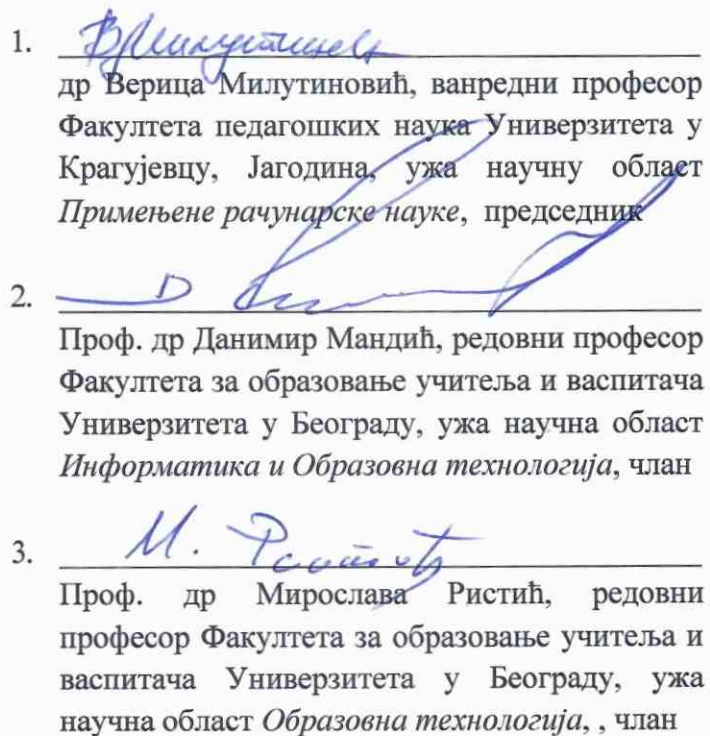 1. В Милутиновић
др Верица Милутиновић, ванредни професор
Факултета педагошких наука Универзитета у
Крагујевцу, Јагодина, ужа научну област
Примењене рачунарске науке, председник
2.
Проф. др Данимир Мандић, редовни професор
Факултета за образовање учитеља и васпитача
Универзитета у Београду, ужа научна област
Информатика и Образовна технологија, члан
3. М. Ристић
Проф. др Мирослава Ристић, редовни
професор Факултета за образовање учитеља и
васпитача Универзитета у Београду, ужа
научна област Образовна технологија, , члан